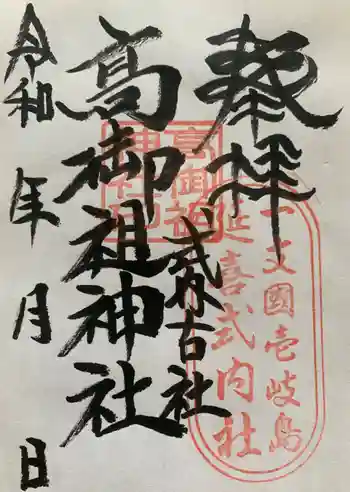 奉拝
一支國壱岐島
延喜式内社
式外古社
高御祖神社
高御祖
神社印
令和　年　月　日